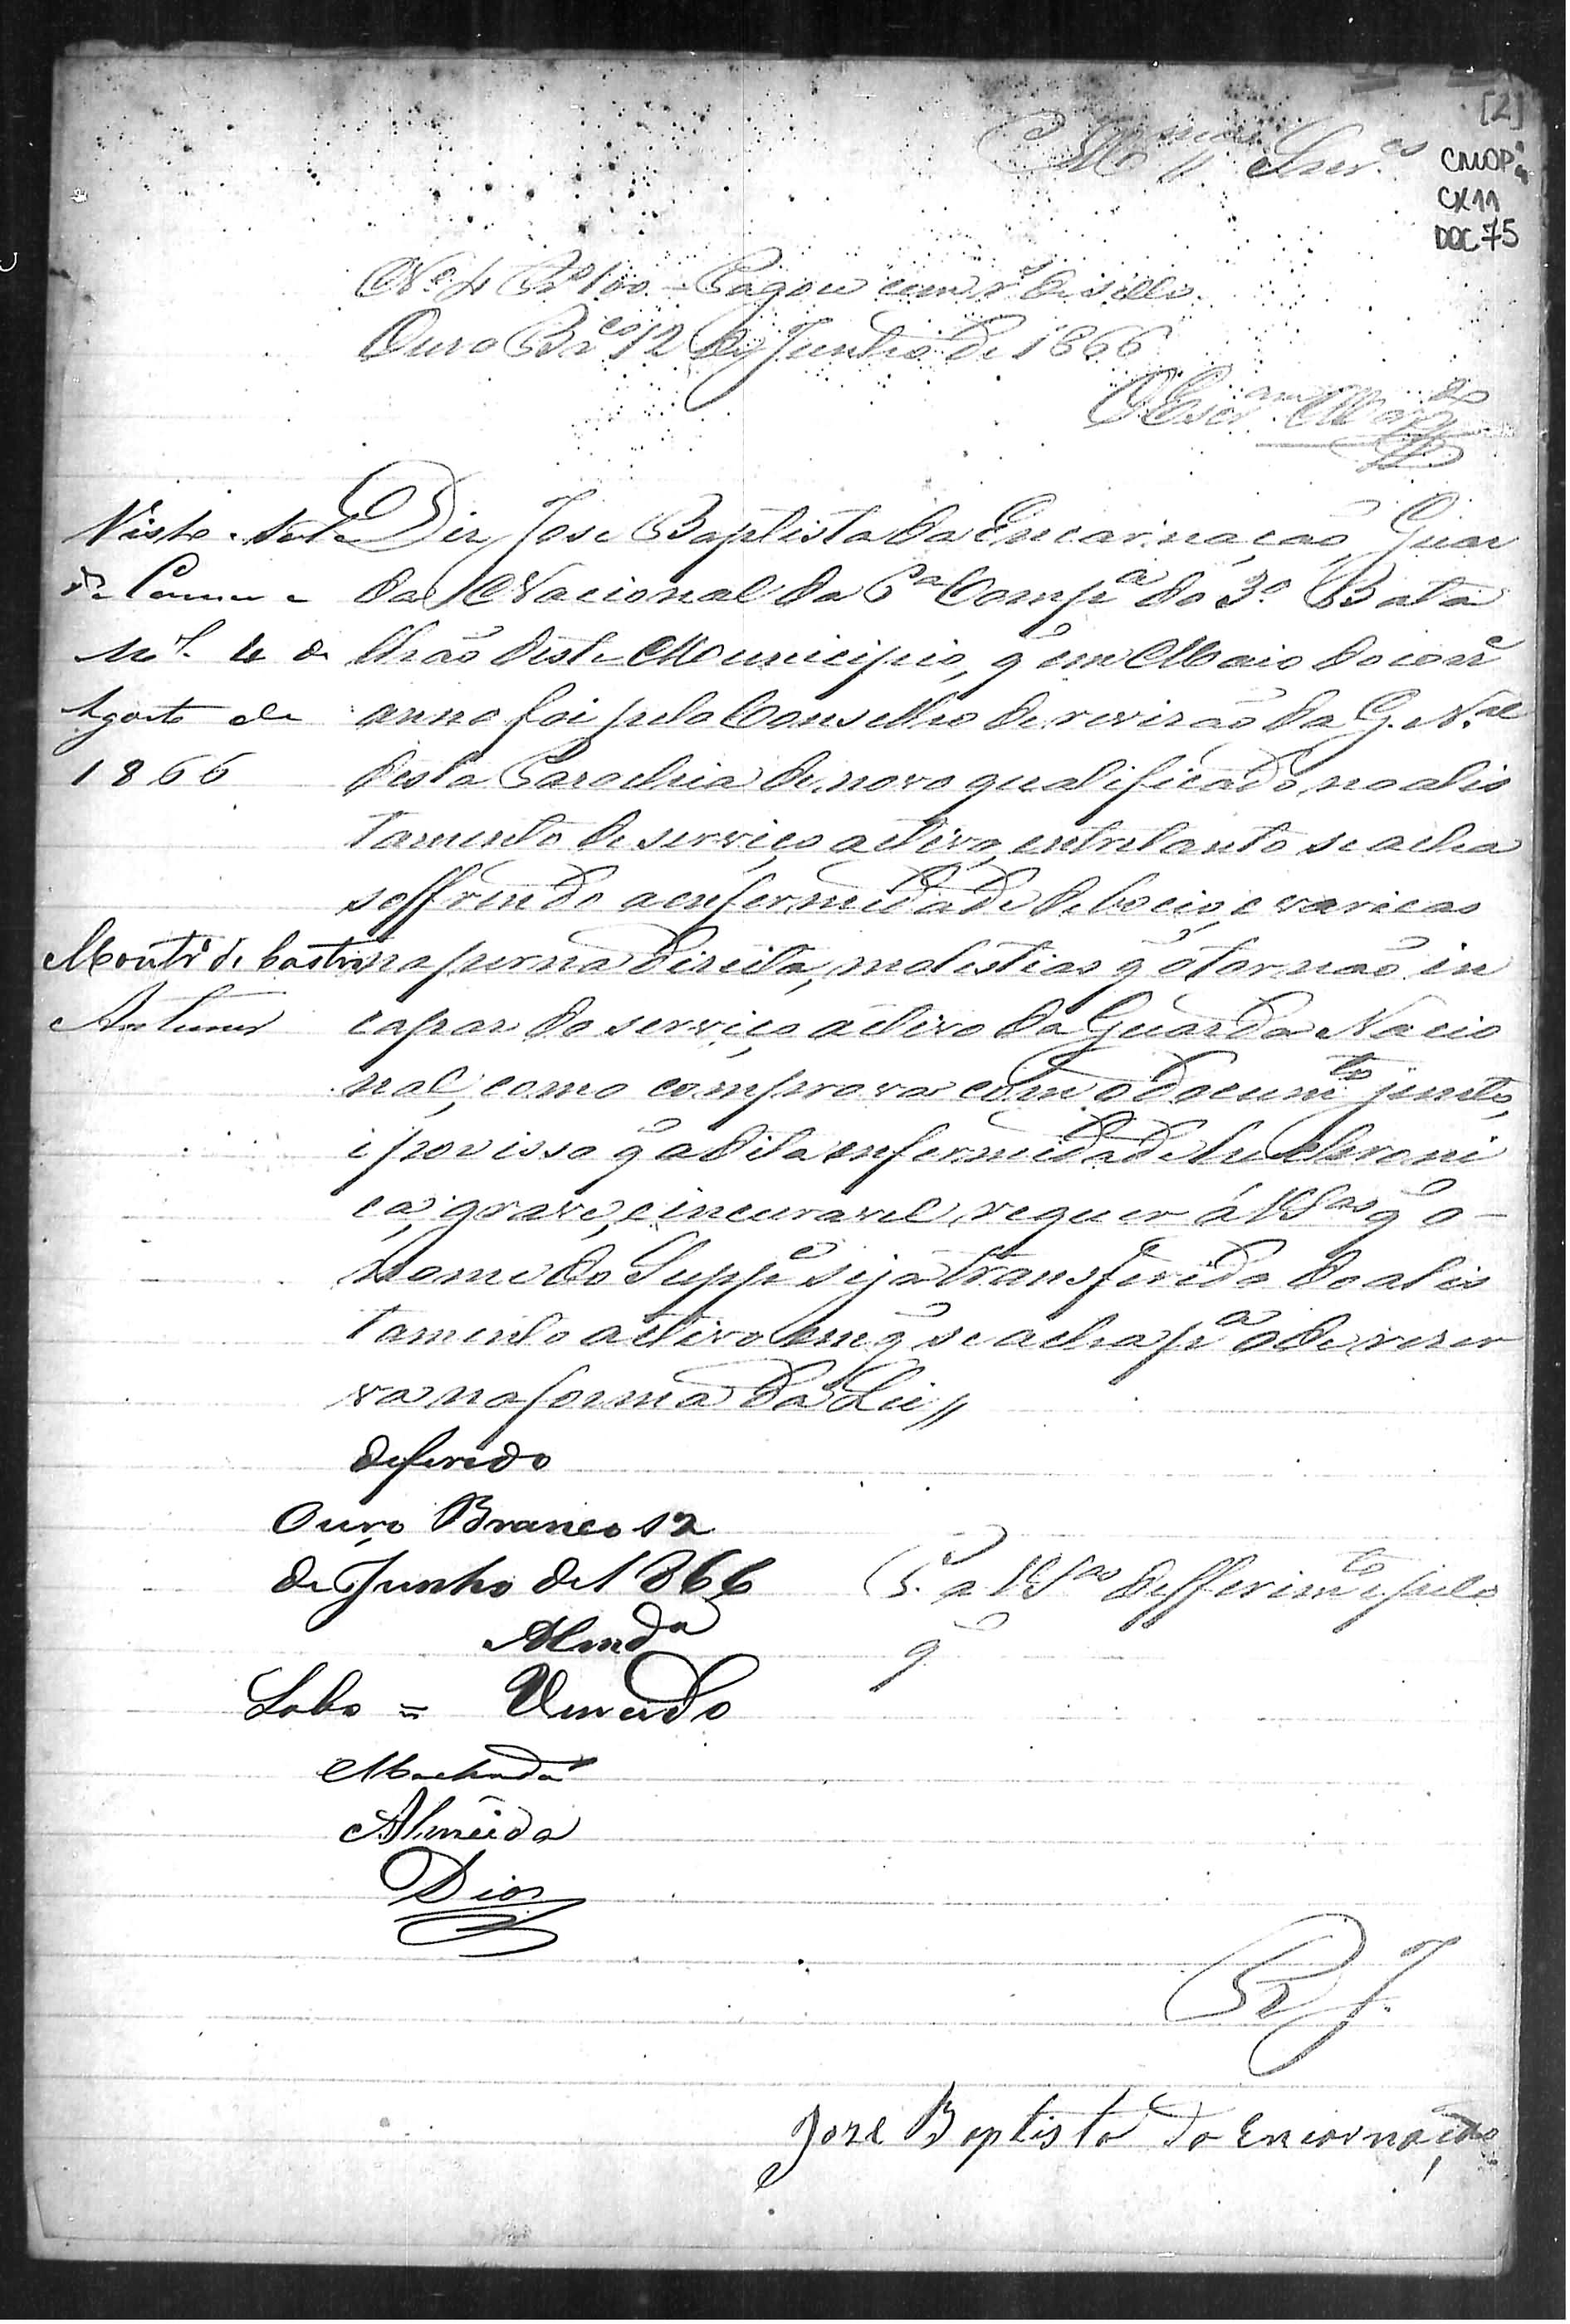 [2]
CMOP
CX11
DOC 75
Snrˢ
Nº 4 Rˢ 100 Pagou cem rˢ de sello.
Ouro Brᶜᵒ 12 de Junho de 1866
O Escram
Diz Jose Baptista da Encarnação, Guar
da Nacional da 6ª Compª do 3º Bata
lhão deste Municipio, q̃ em Maio do corrᵉ
anno foi pelo Conselho de revizão da G. Nᵃˡ
desta Parochia de novo qualificado no alis
tamento de serviço activo, entretanto se acha
soffrendo a enfermidade de bocio, e varicas
na perna direita, molestias q̃ o tornão in
capaz do serviço activo da Guarda Nacio
nal, como comprova com o documᵗᵒ junto,
i por isso q̃ a dita enfermidade he chroni
ca, grave, e incuravel, requer á VSᵃˢ q̃ o
nome do Suppᵉ seja transferido do alis
tamento activo em q̃ se acha pᵃ o de rezer
va na forma da Lei //
Visto. Sala
Agosto de
1866
Montrº de Castro
Antunes
deferido
Ouro Branco 12
de Junho de 1866
Almdª
Lobo = Vencido
Machado
Almeida
Dias
P. a VSᵃˢ defferimᵗᵒ, pelo
q̃
E R J.
Joze Baptista da Encarnação